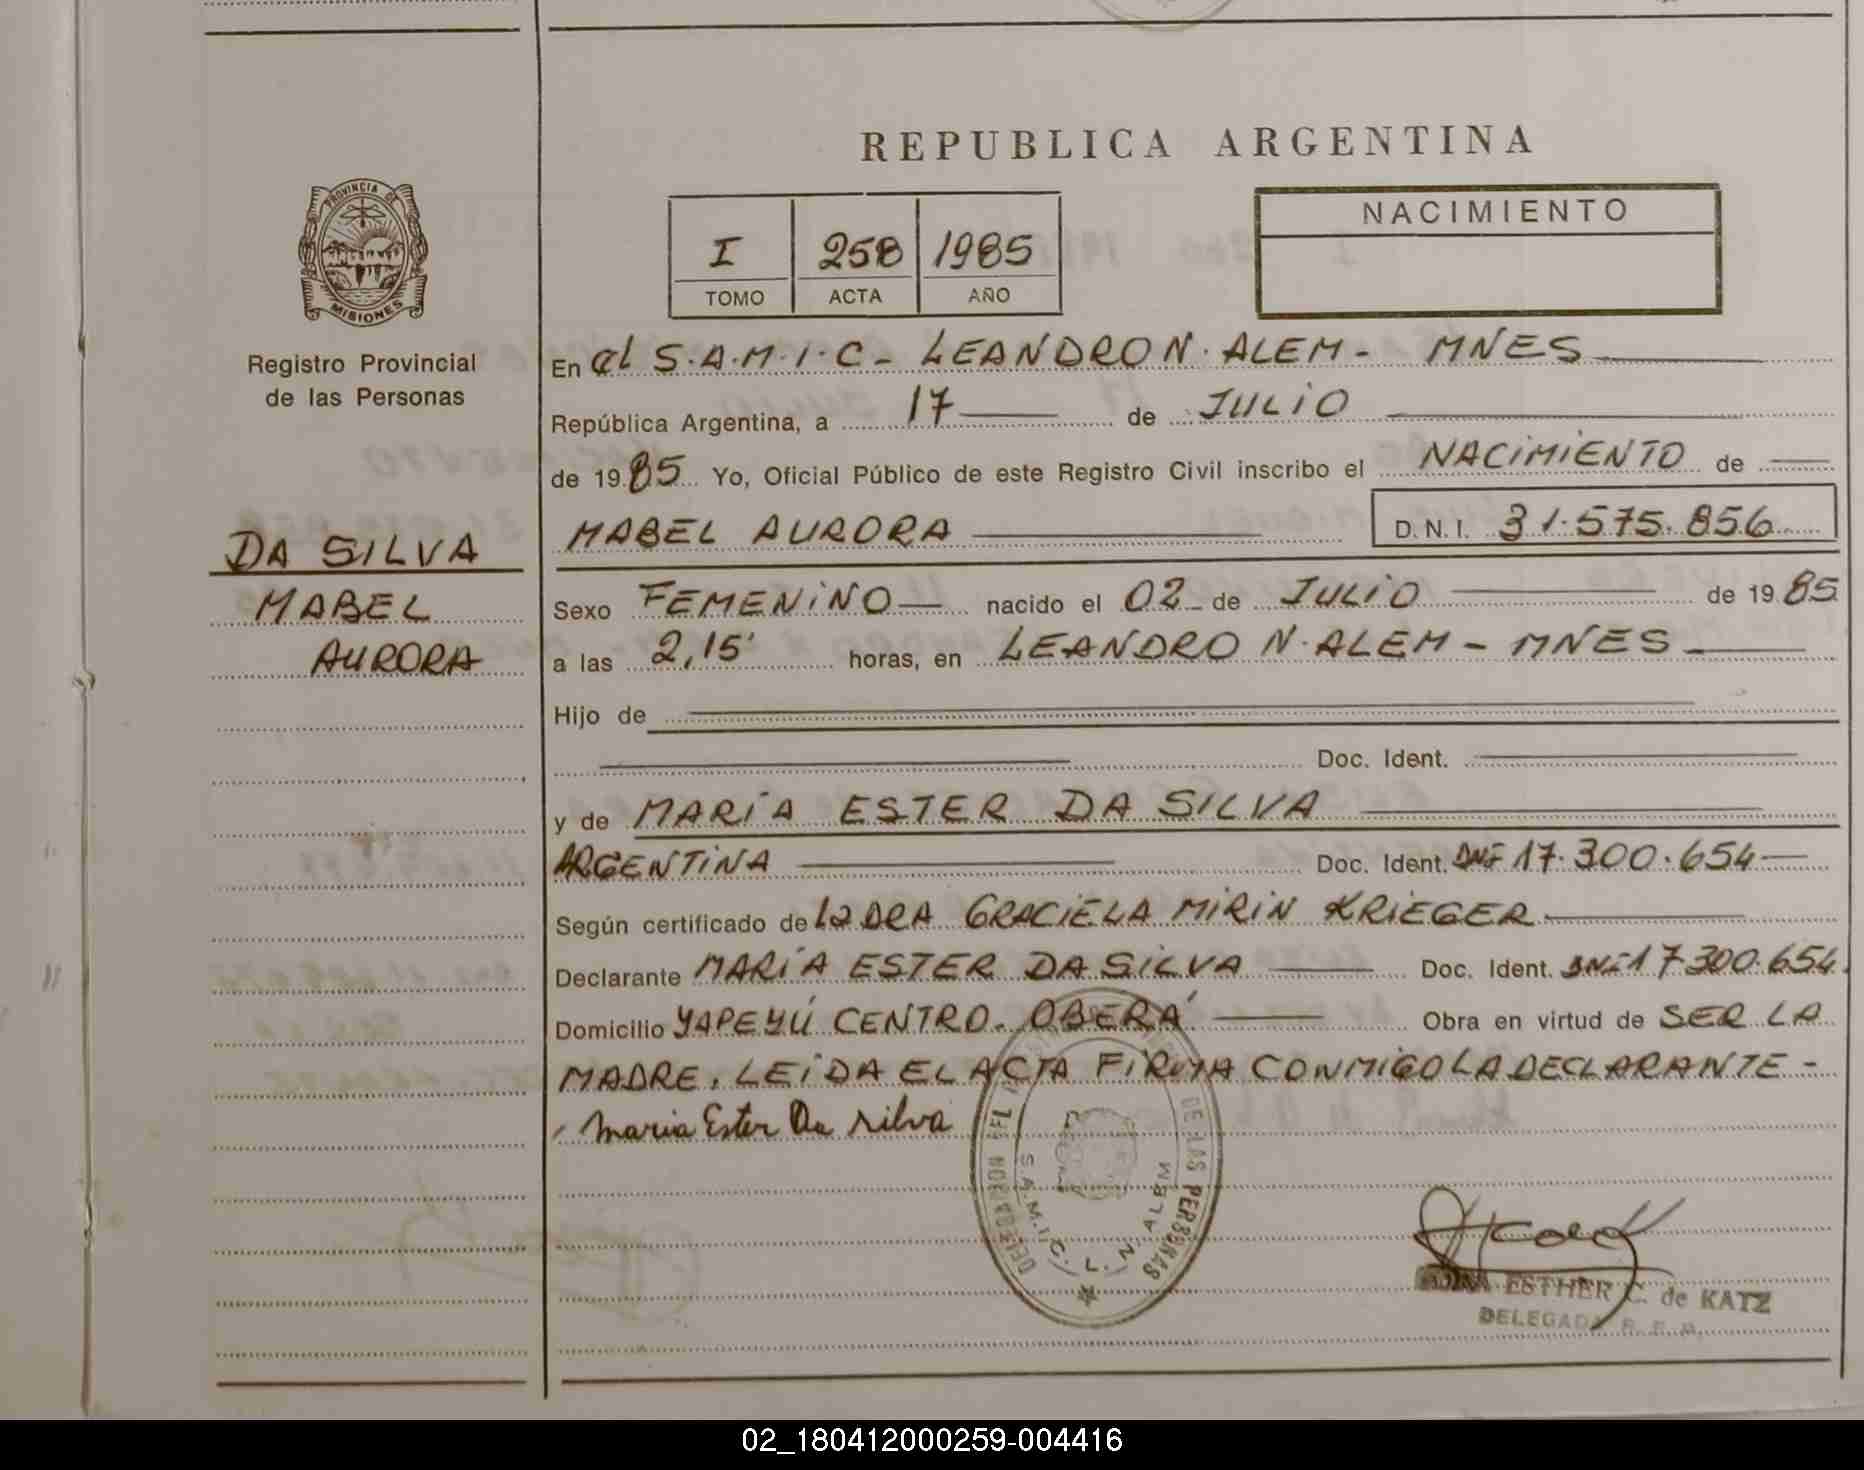 REPUBLICA ARGENTINA
PROVINCIA DE
MISIONES
Registro Provincial
de las Personas
I 258 1985
TOMO ACTA AÑO
NACIMIENTO
En el S.A.M.I.C - LEANDRO N. ALEM - MNES
República Argentina, a 17 de JULIO
de 1985 Yo, Oficial Público de este Registro Civil inscribo el NACIMIENTO de
DA SILVA
MABEL
AURORA
MABEL AURORA D.N.I. 31.575.856
Sexo FEMENINO nacido el 02 de JULIO de 1985
a las 2,15' horas, en LEANDRO N. ALEM - MNES
Hijo de
Doc. Ident.
y de MARÍA ESTER DA SILVA
ARGENTINA Doc. Ident. DNI 17.300.654
Según certificado de la DRA GRACIELA MIRIN KRIEGER
Declarante MARÍA ESTER DA SILVA Doc. Ident. DNI 17300.654
Domicilio YAPEYÚ CENTRO. OBERÁ Obra en virtud de SER LA
MADRE, LEIDA EL ACTA FIRMA CONMIGO LA DECLARANTE -
Maria Ester Da silva
DE LAS PERSONAS
S.A.M.I.C. L. N. ALEM
ESTHER C. de KATZ
DELEGADA R. P. P.
02_180412000259-004416